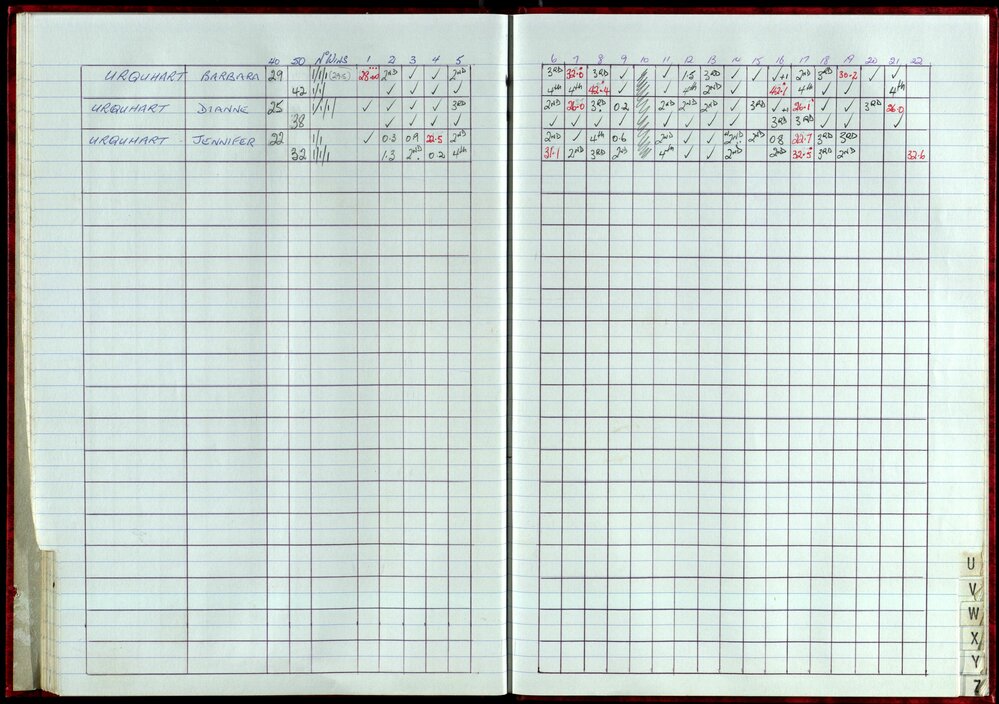 40 50 1 2 3 4 5 6 7 8 9 10 11 12 13 14 15 16 17 18 19 20 21 22
URQUHART BARBARA 29 2ND ✓ ✓ 2ND 3RD 32.0 3RD ✓ ✓ 1.5 3RD ✓ ✓ ✓+1 2ND 3RD 30.2 ✓ ✓
42 ✓ ✓ ✓ ✓ 4th 4th 42.4 ✓ ✓ 4th 2ND ✓ 42.1 4th ✓ ✓ 4th
URQUHART DIANNE 25 ✓ ✓ ✓ ✓ 3RD 2ND 26.0 3RD 0.2 2ND 2ND 2ND ✓ 3RD ✓+1 26.1 ✓ ✓ 3RD 26.0
38 ✓ ✓ ✓ ✓ ✓ ✓ ✓ ✓ ✓ ✓ ✓ ✓ 3RD 3RD ✓ ✓ ✓
URQUHART - JENNIFER 22 ✓ 0.3 0.9 22.5 2ND 2ND ✓ 4th 0.6 2ND ✓ ✓ 2ND 2ND 0.8 22.7 3RD 3RD
32 1.3 2ND 0.2 4th 31.1 2ND 3RD 2ND 4th ✓ ✓ 2ND 2ND 32.5 3RD 2ND 32.6
U
V
W
X
Y
Z